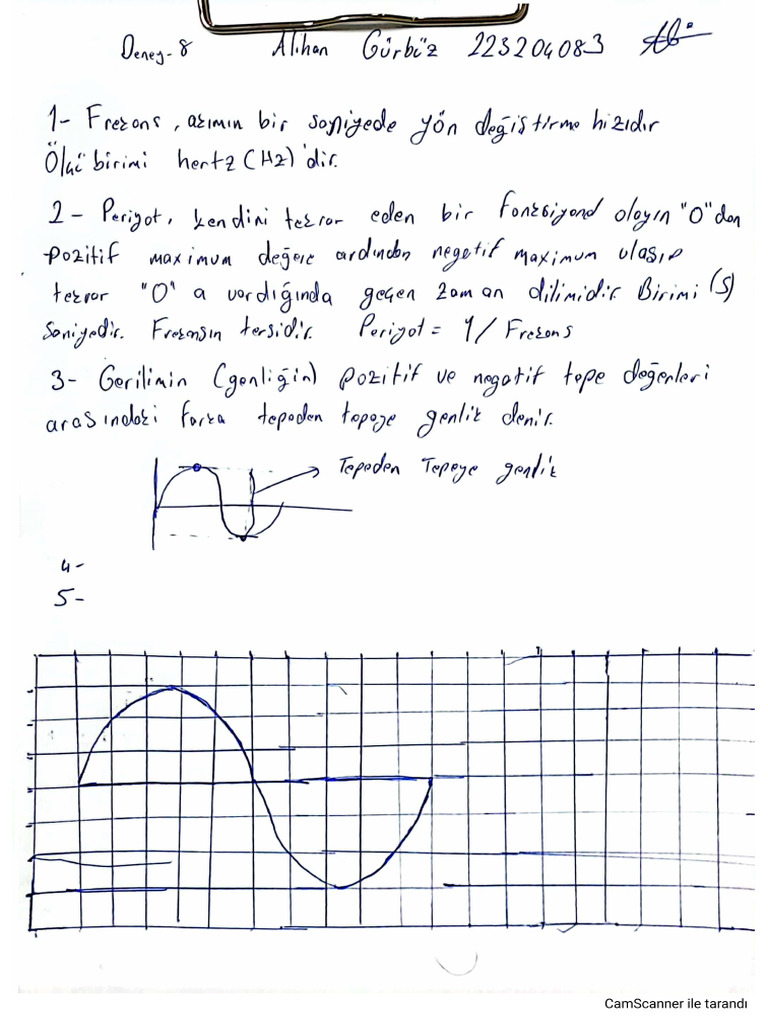 Deney-8 Alihan Gürbüz 223204083
1- Frekans, akımın bir saniyede yön değiştirme hızıdır
Ölçü birimi hertz (Hz)'dir.
2- Periyot, kendini tekrar eden bir fonksiyond olayın "0"dan
pozitif maximum değere ardından negatif maximum ulaşıp
tekrar "0" a vardığında geçen zaman dilimidir. Birimi (s)
Saniyedir. Frekansın tersidir. Periyot = 1/Frekans
3- Gerilimin (genliğin) pozitif ve negatif tepe değerleri
arasındaki farka tepeden tepeye genlik denir.
Tepeden Tepeye genlik
4-
5-
CamScanner ile tarandı